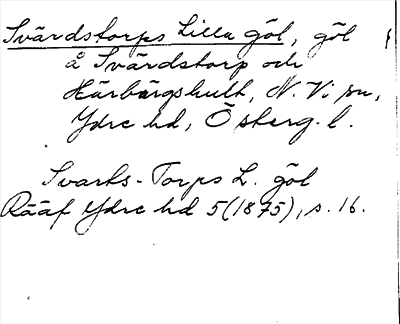 Svärdstorps Lilla göl, göl
å Svärdstorp och
Härbärgshult, N. Vi sn,
Ydre hd, Österg. l.
Svarts-Torps L. göl
Rääf Ydre hd 5(1875), s. 16.